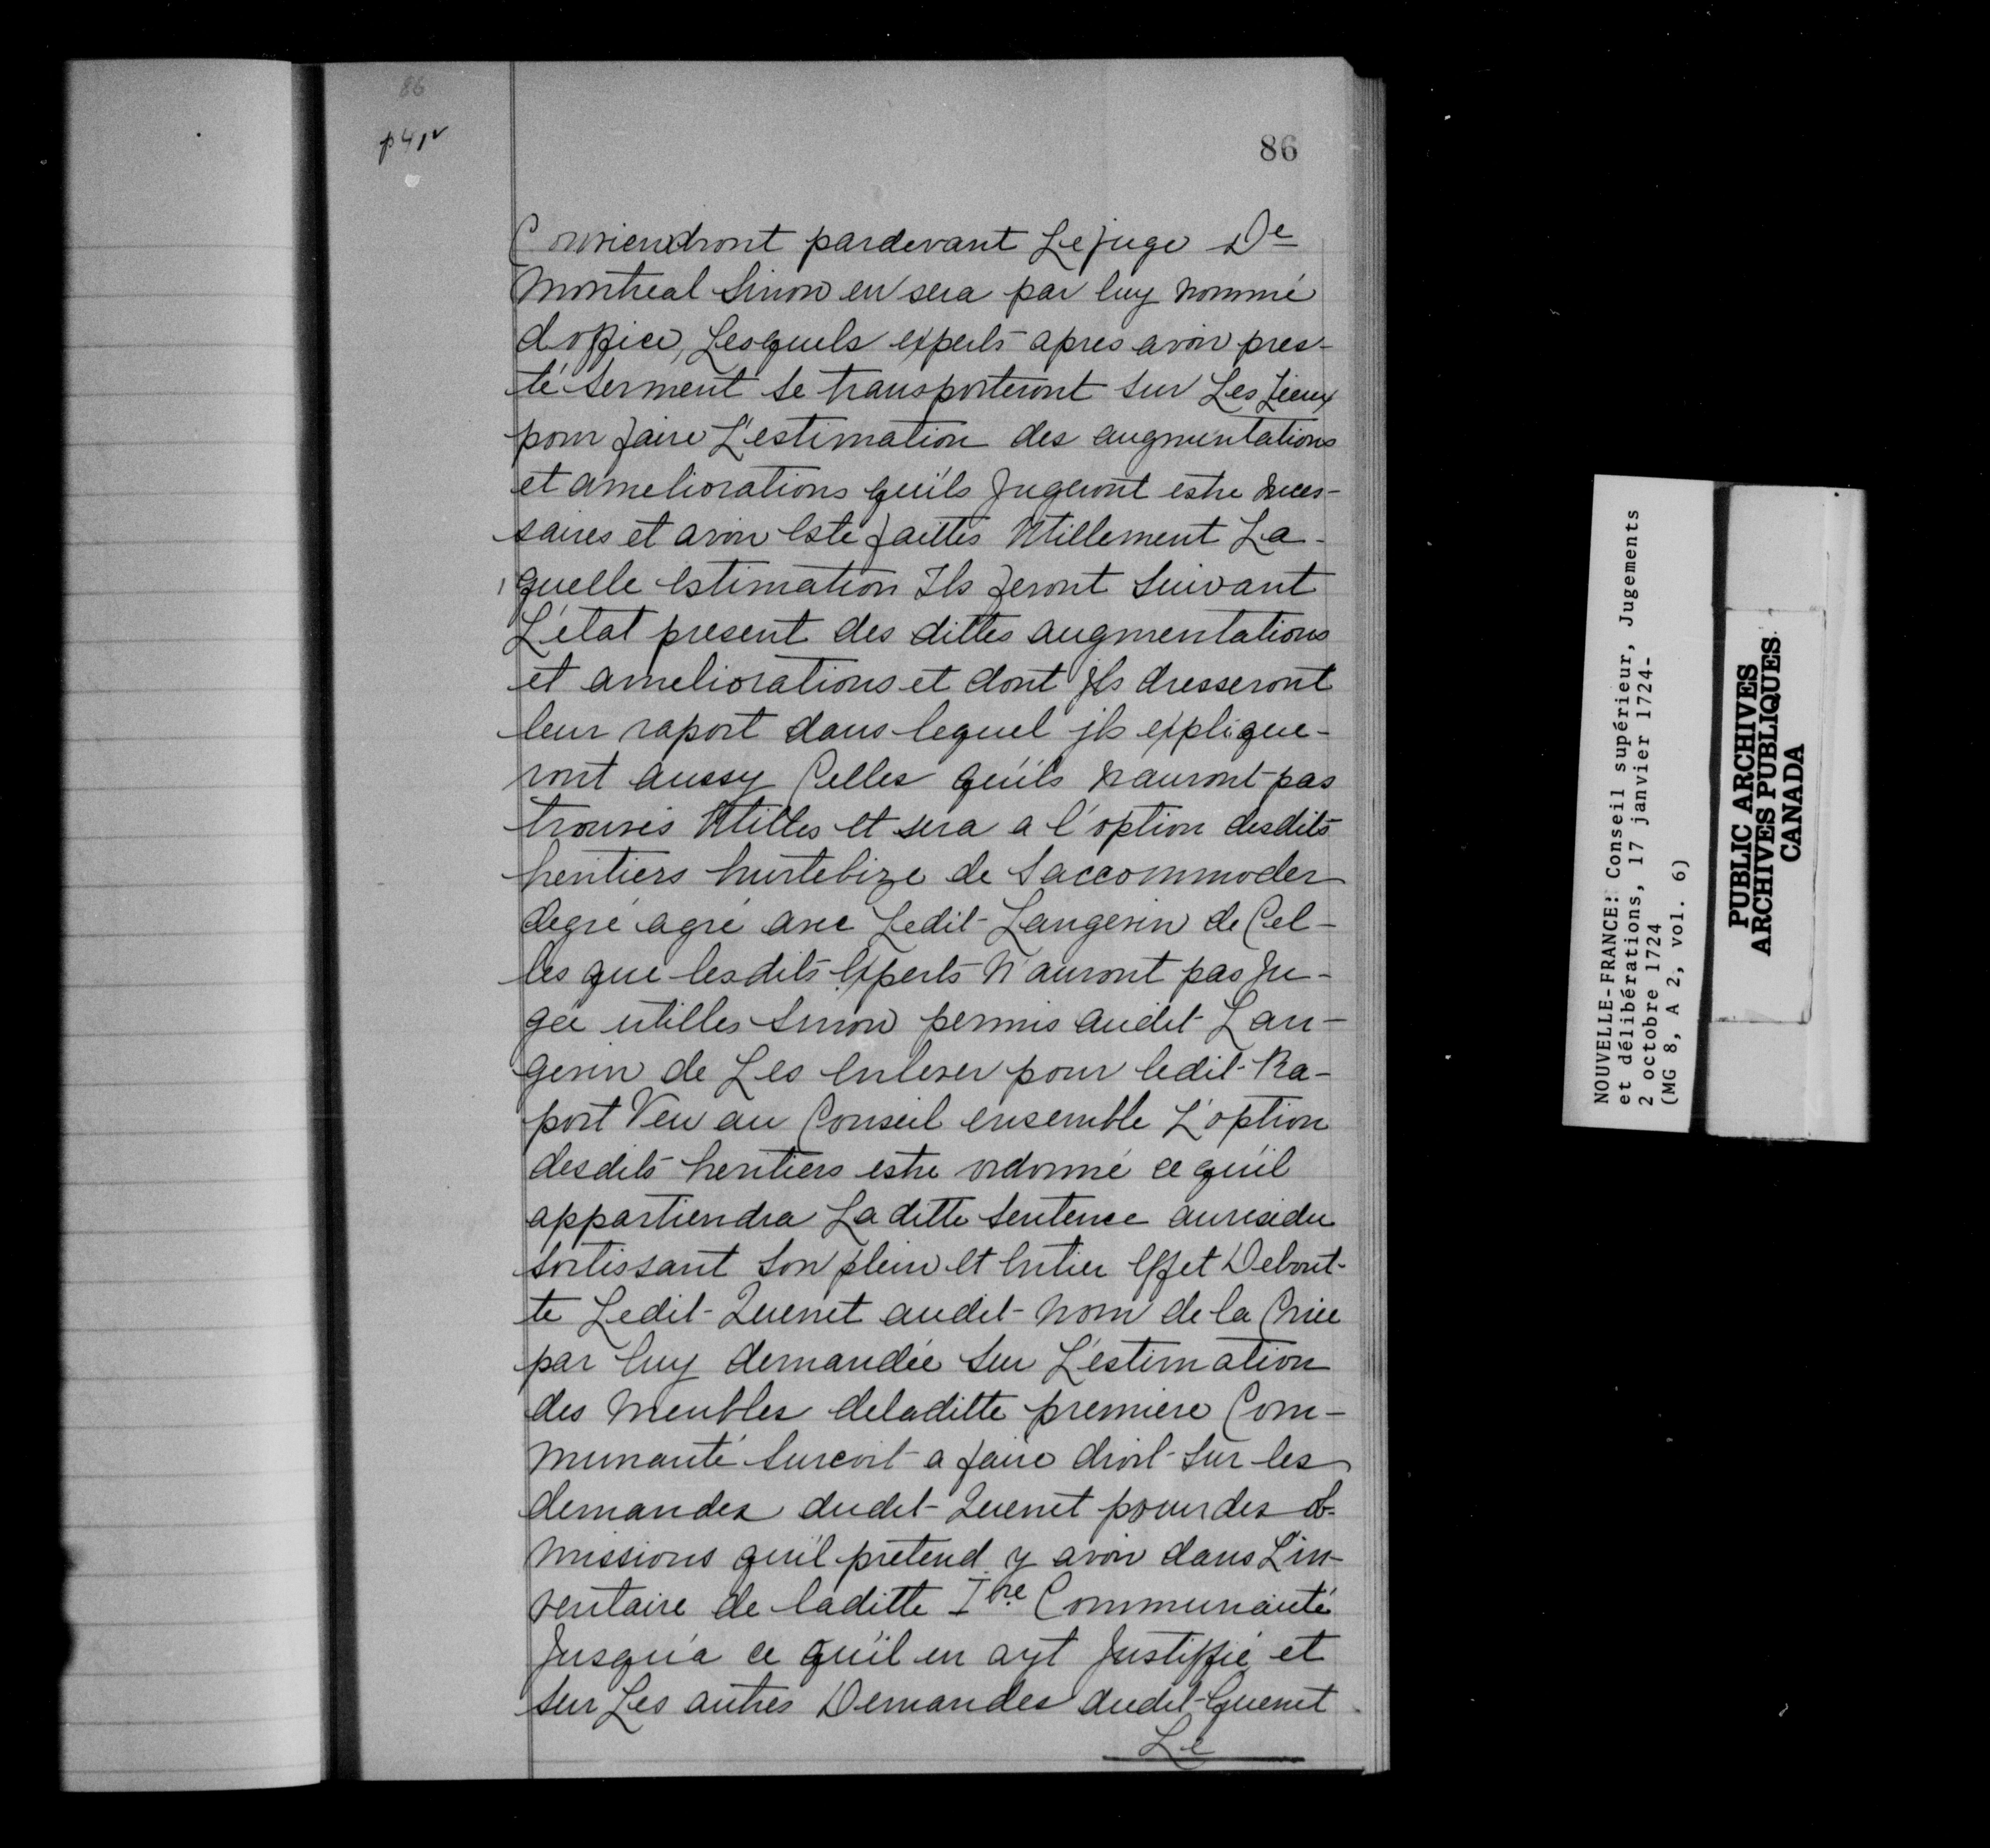 86
p 41v
86
Conviendront pardevant Le juge De
Montreal Sinon en sera par luy nommé
d'office, Lesquels experts apres avoir pres-
té serment se transporteront sur Les Lieux
pour faire L'estimation des augmentations
et ameliorations qu'ils Jugeront estre neces-
saires et avoir Esté faittes Utillement La-
quelle Estimation Ils feront Suivant
L'état present des dittes augmentations
et ameliorations et dont Jls dresseront
leur raport dans lequel jls explique-
ront aussy Celles qu'ils n'auront pas
trouvés Utilles et sera a l'option desdits
heritiers hurtebize de Saccommoder
degré agré avec Ledit Langevin de Cel-
les que lesdits Experts N'auront pas Ju-
gée utilles Sinon permis audit Lan-
gevin de Les Enlever pour ledit Ra-
port Veu au Conseil ensemble L'option
desdits heritiers estre ordonné ce qu'il
appartiendra La ditte Sentence au residu
sortissant Son plein et Entier Effet Debout-
te Ledit Quenet audit nom de la Crüe
par luy demandée Sur L'estimation
des Meubles deladitte premiere Com-
munauté Surcoit a faire droit Sur les
demandes dudit Quenet pour des o-
missions qu'il pretend y avoir dans L'in-
ventaire de laditte Iere Communauté
Jusqu'a ce qu'il en ayt Justiffié et
Sur Les autres Demandes dudit Quenet
Le
NOUVELLE-FRANCE: Conseil supérieur, Jugements
et délibérations, 17 janvier 1724-
2 octobre 1724
(MG 8, A 2, vol. 6)
PUBLIC ARCHIVES
ARCHIVES PUBLIQUES
CANADA